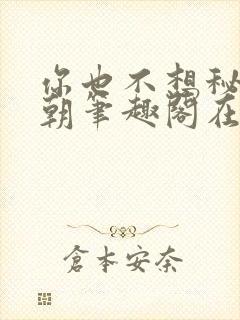 你也不想秘
朝笔趣阁在
倉本安奈